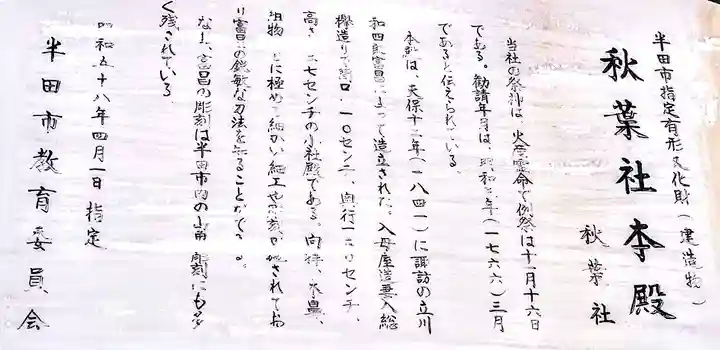 半田市指定有形文化財(建造物)
秋葉社本殿
秋葉社
当社の祭神は、火産霊命で例祭は十一月十六日
である。勧請年月は、明和三年(一七六六)三月
であると伝えられている。
本殿は、天保十二年(一八四一)に諏訪の立川
和四郎富昌によって造立された。入母屋造妻入総
欅造りで間口一一〇センチ、奥行一 〇センチ、
高さ 二七センチの小社殿である。向拝、木鼻、
組物 どに極めて細かい細工や彫刻が施されてお
り富昌の鋭敏な刀法を知ることができる。
なお、富昌の彫刻は半田市内の山車彫刻にも多
く残されている。
昭和五十八年四月一日指定
半田市教育委員会